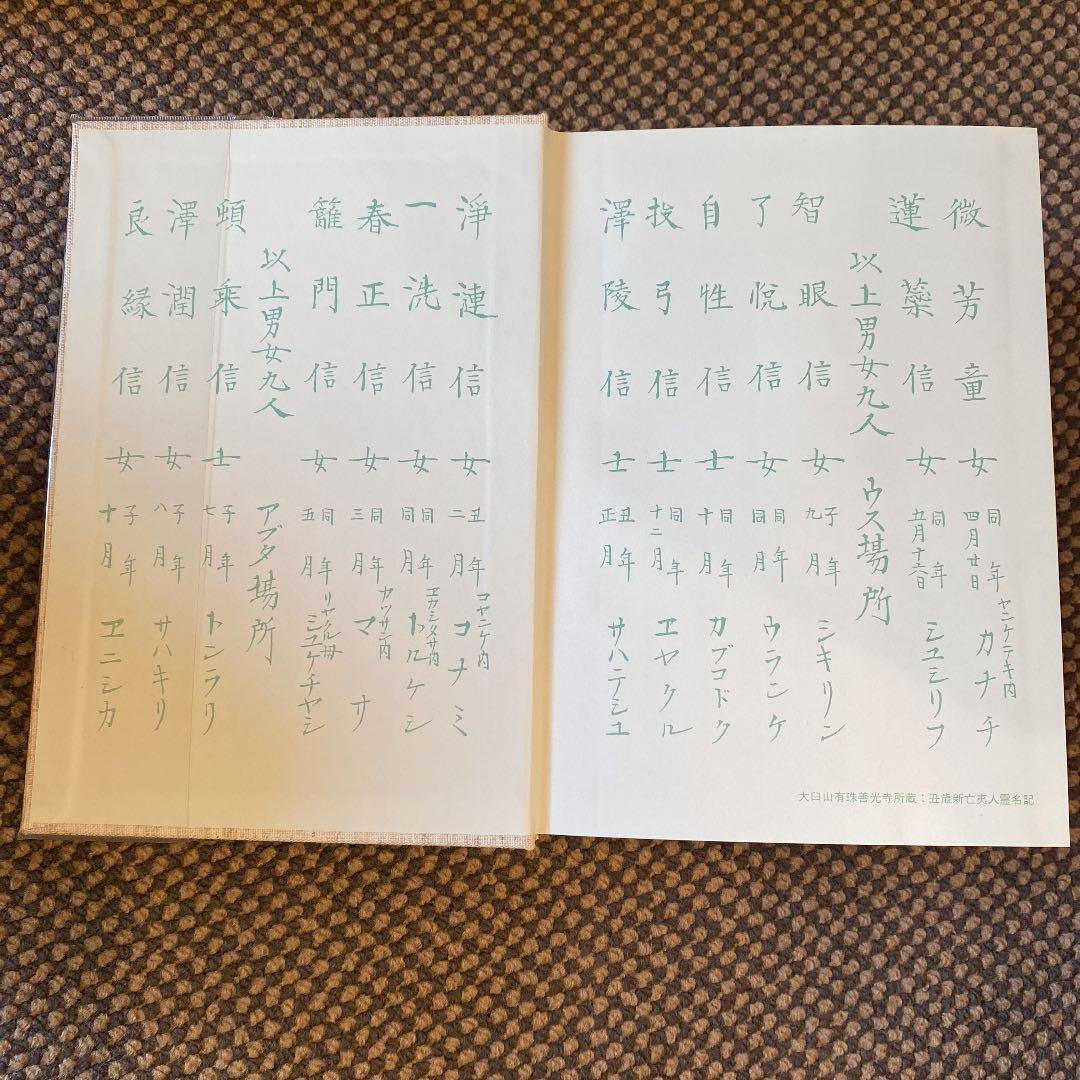 微芳童女 同年四月廿日 ヤンケテキ内 カナチ
蓮蘂信女 同年五月十六日 シユシリフ
以上男女九人 ウス場所
智眼信女 子年九月 シキリン
了悦信女 同年同月 ウランケ
自性信士 同年十月 カブコドク
投弓信士 同年十二月 ヱヤクル
澤陵信士 丑年正月 サハテシユ
大臼山有珠善光寺所蔵：丑歳新亡夷人霊名記
淨漣信女 丑年二月 コヤンケ内 コナミ
一洗信女 同年同月 ヱカシタサ内 トルケシ
春正信女 同年三月 カツサン内 マサ
籬門信女 同年五月 シユケチヤシ
以上男女九人 アブタ場所
頓乘信士 子年七月 トンラリ
澤潤信女 子年八月 サハキリ
良縁信女 子年十月 ヱニシカ